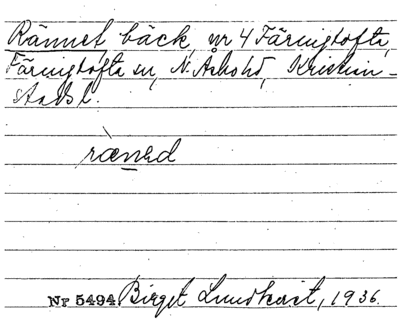 Rännet bäck, nr 4 Färingtofta,
Färingtofta sn, N. Åsbo hd, Kristian-
stads l.
ræned
Nr 5494 Birget Lundkvist, 1936.